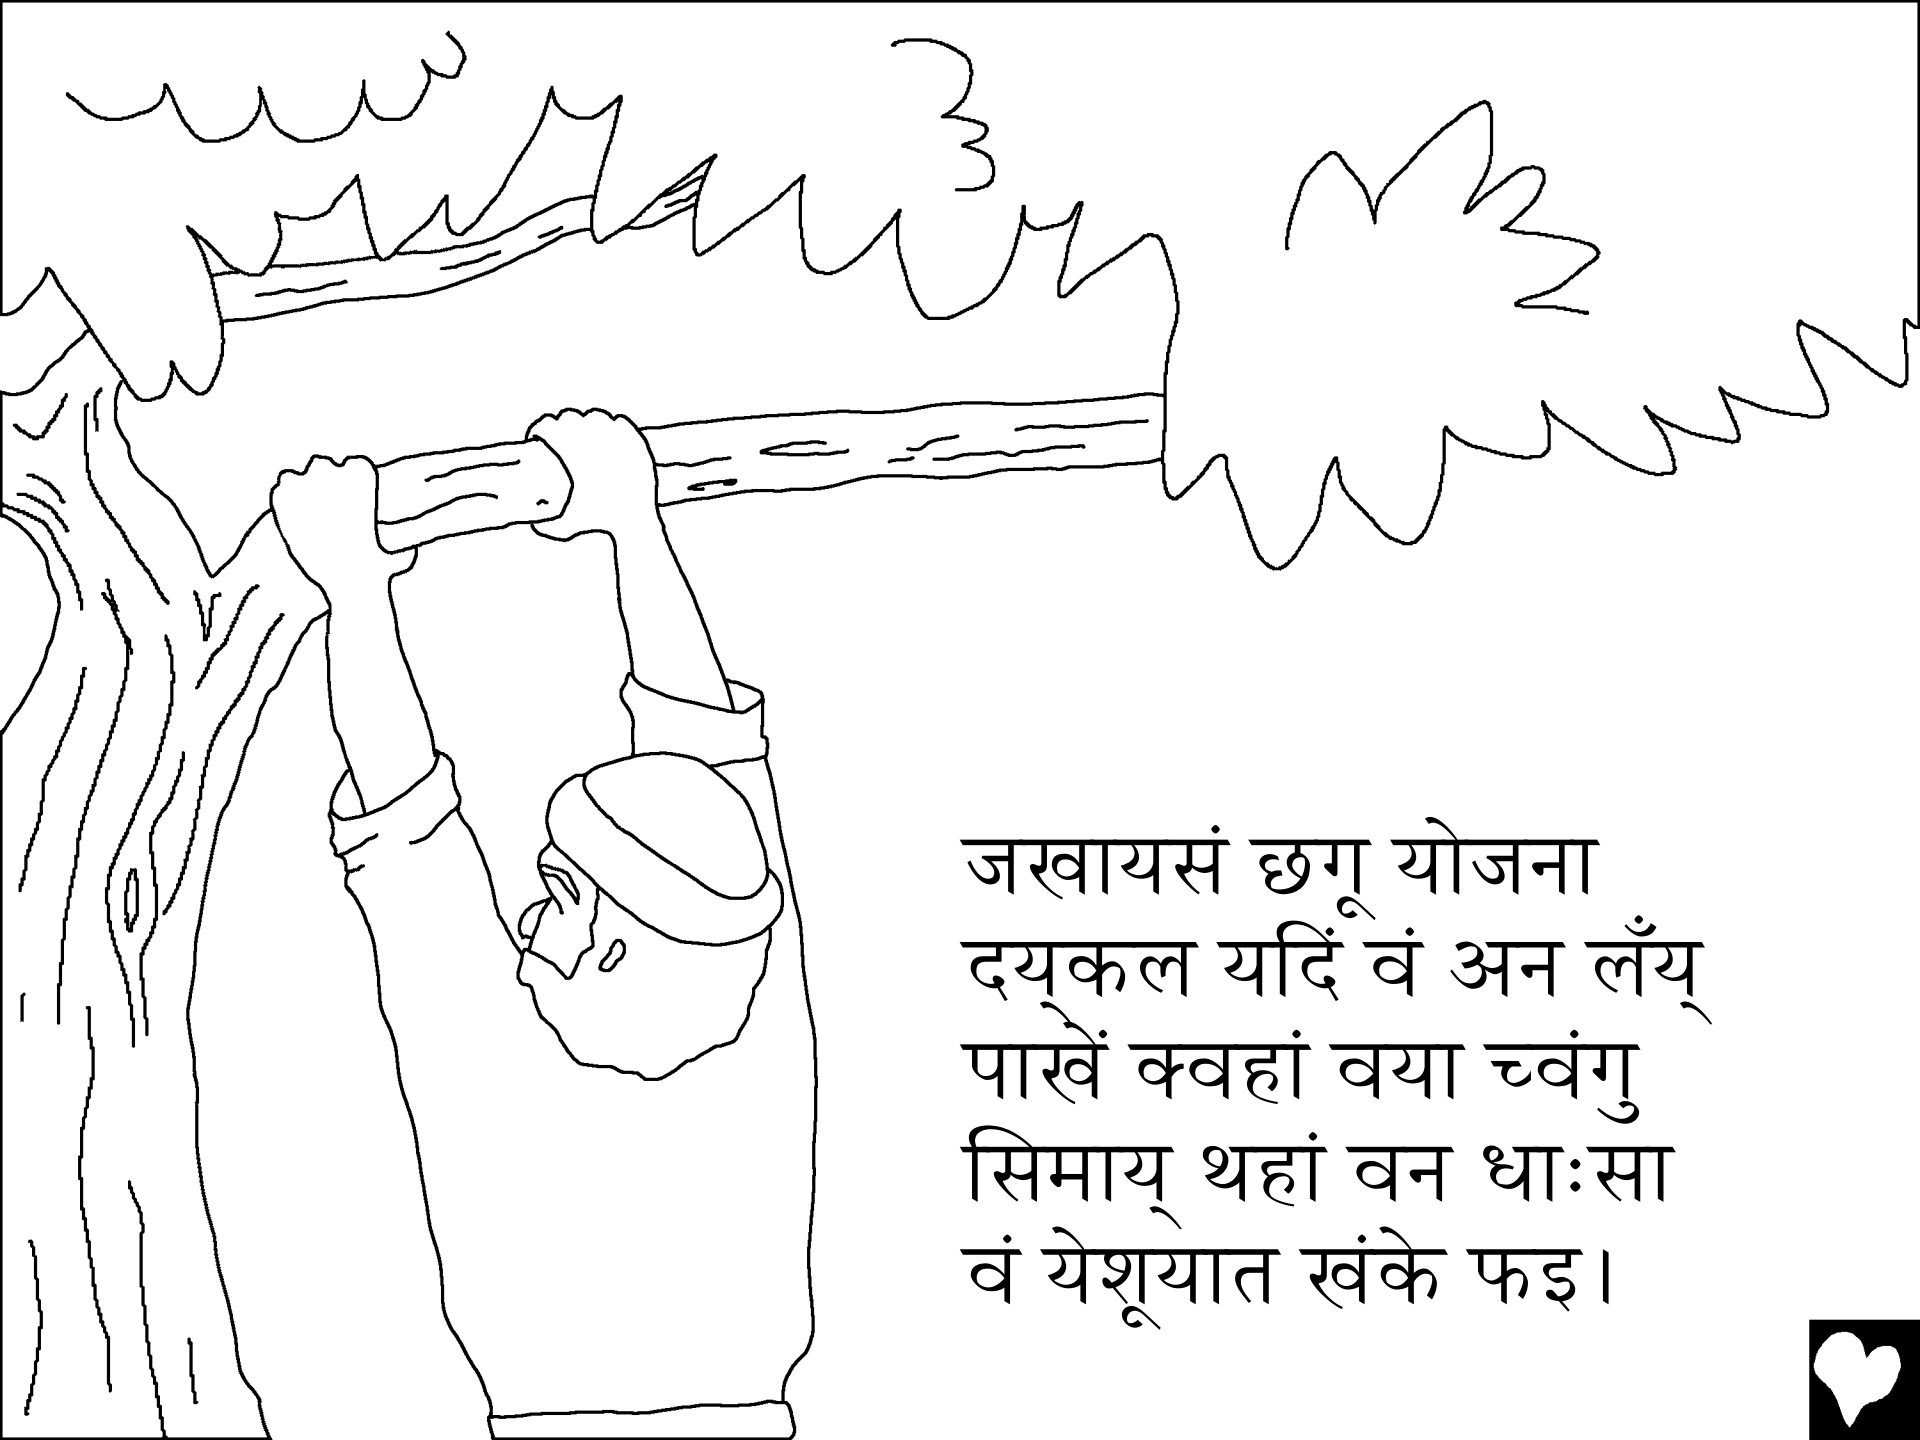 जखायसं छगू योजना
दय्‌कल यदिं वं अन लँय्
पाखें क्वहां वया च्वंगु
सिमाय् थहां वन धाःसा
वं येशूयात खंके फइ।